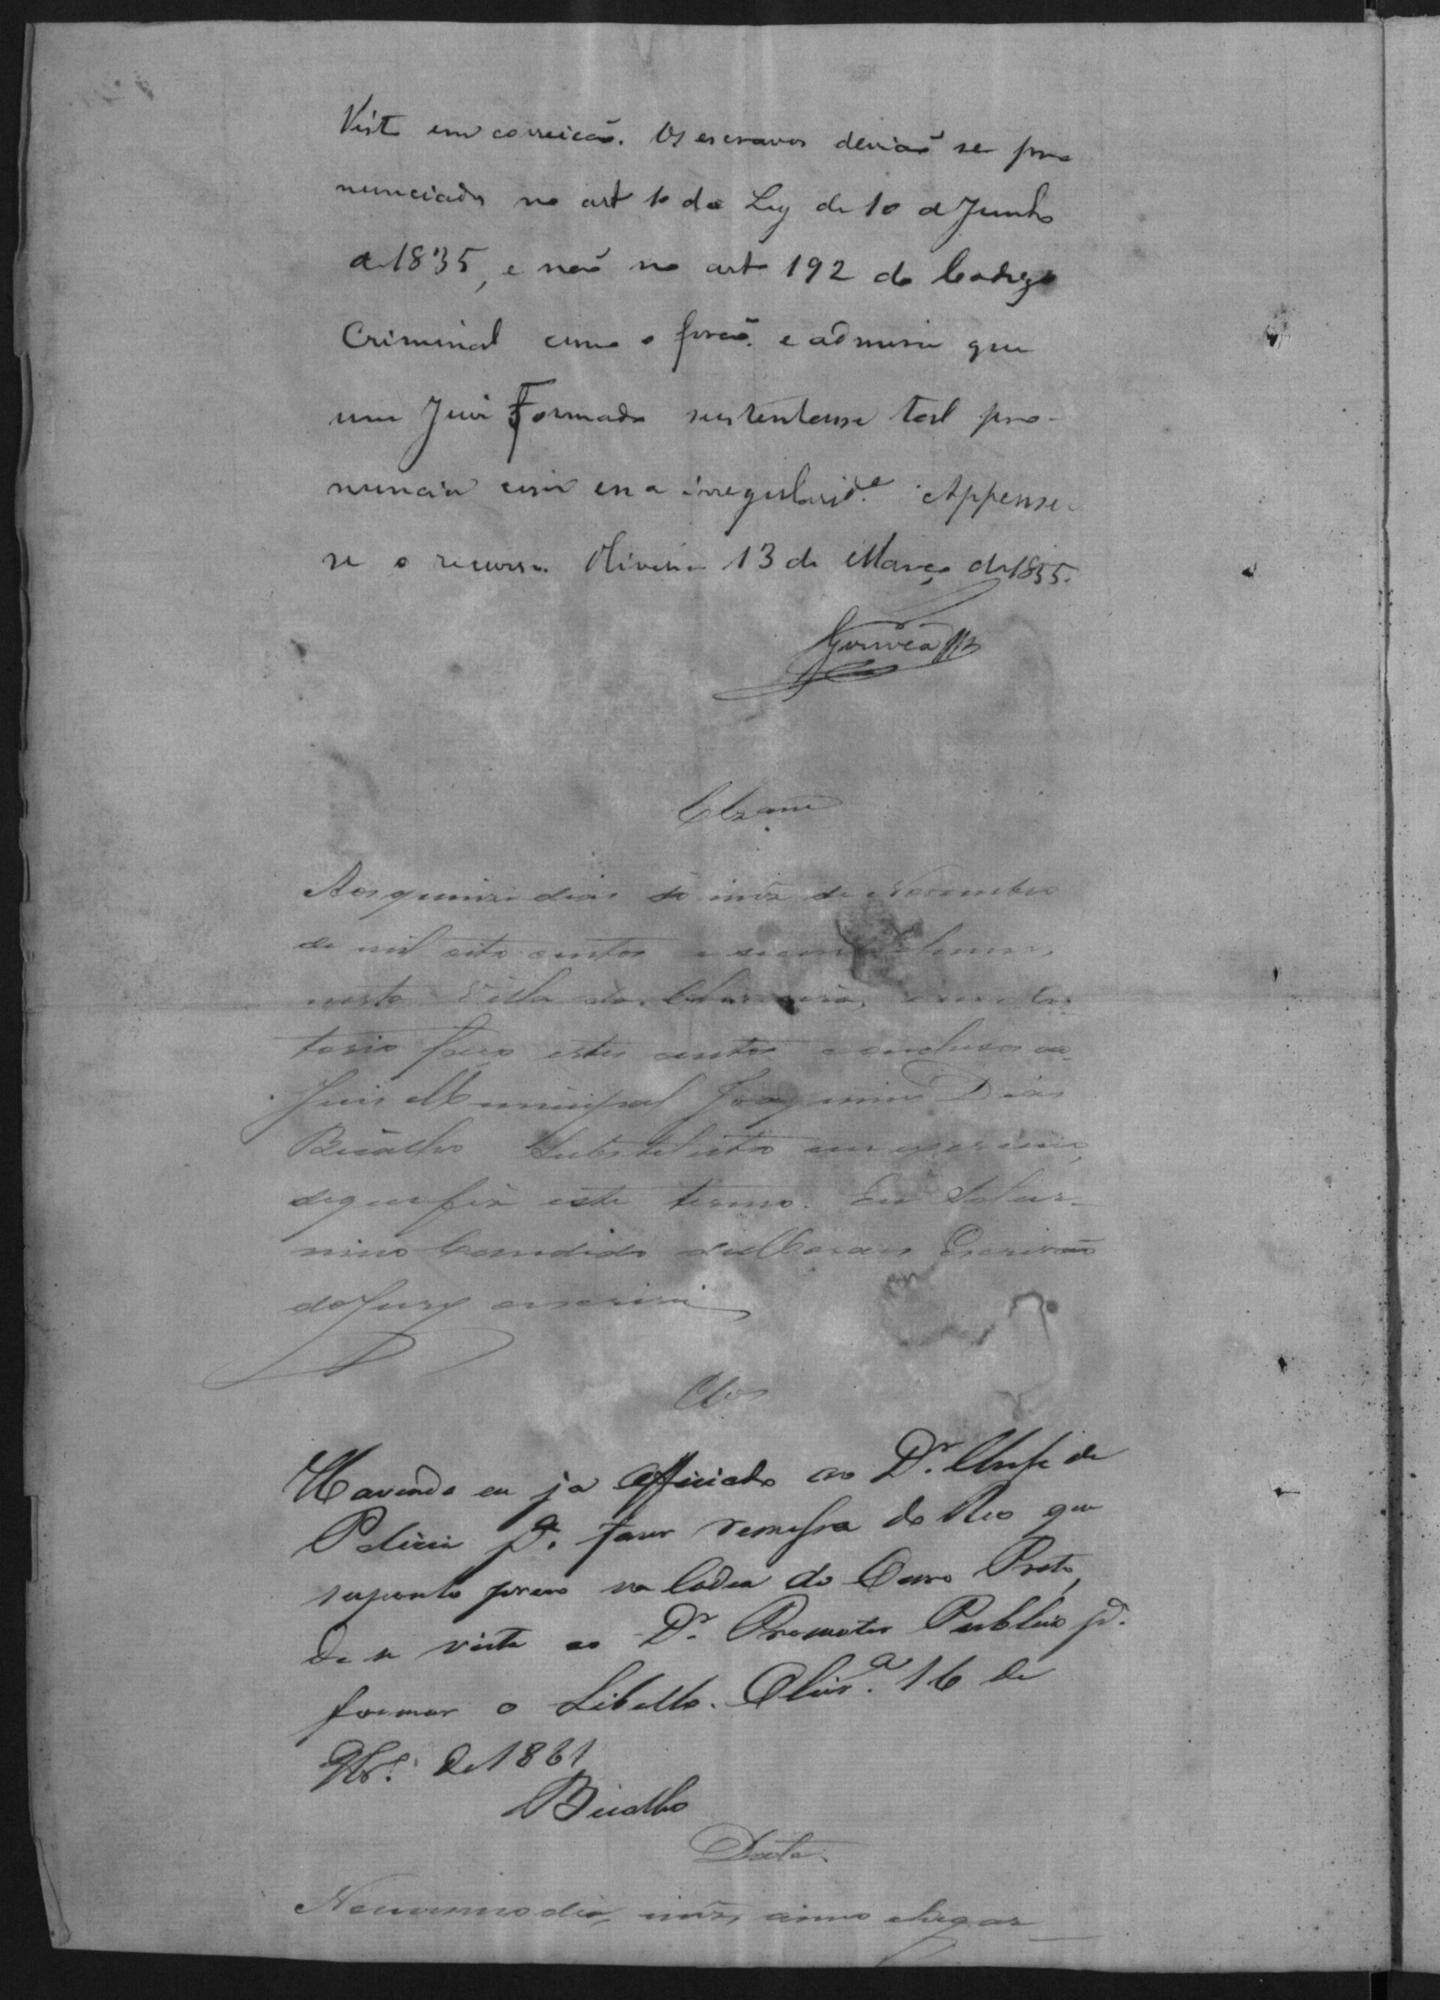 Visto em correicão. Os escravos devião ser pro
nunciados no art 1o da Ley de 10 de Junho
de 1835, e não no arto 192 do Codigo
Criminal como o forão. e admira que
um Juiz Formado sustentasse tal pro-
nuncia com essa irregularide. Appense-
se o recurso. Oliveira 13 de Março de 1855.
Clzam
Aos quinze dias do mez de Novembro
de mil oito centos e secenta hum
nesta Villa da Oliveira, em Car-
torio faço estes autos conclusos ao
Juis Municipal Joaquim Dias
Bicalho Substituto em exercicio,
de que fiz este termo. Eu Satur-
nino Candido de Moraes Escrivão
do Jury o escrevi
Clos
Havendo eu já officiado ao Dr. Chefe de
Policia pa. fazer remessa do Reo que
supponho prezo na Cadea do Ouro Preto,
De se vista ao Dr. Promotor Publico pa.
formar o Libello. Olivra. 16 de
9br.o de 1861
Bicalho
Data.
No mesmo dia, mez, anno e lugar